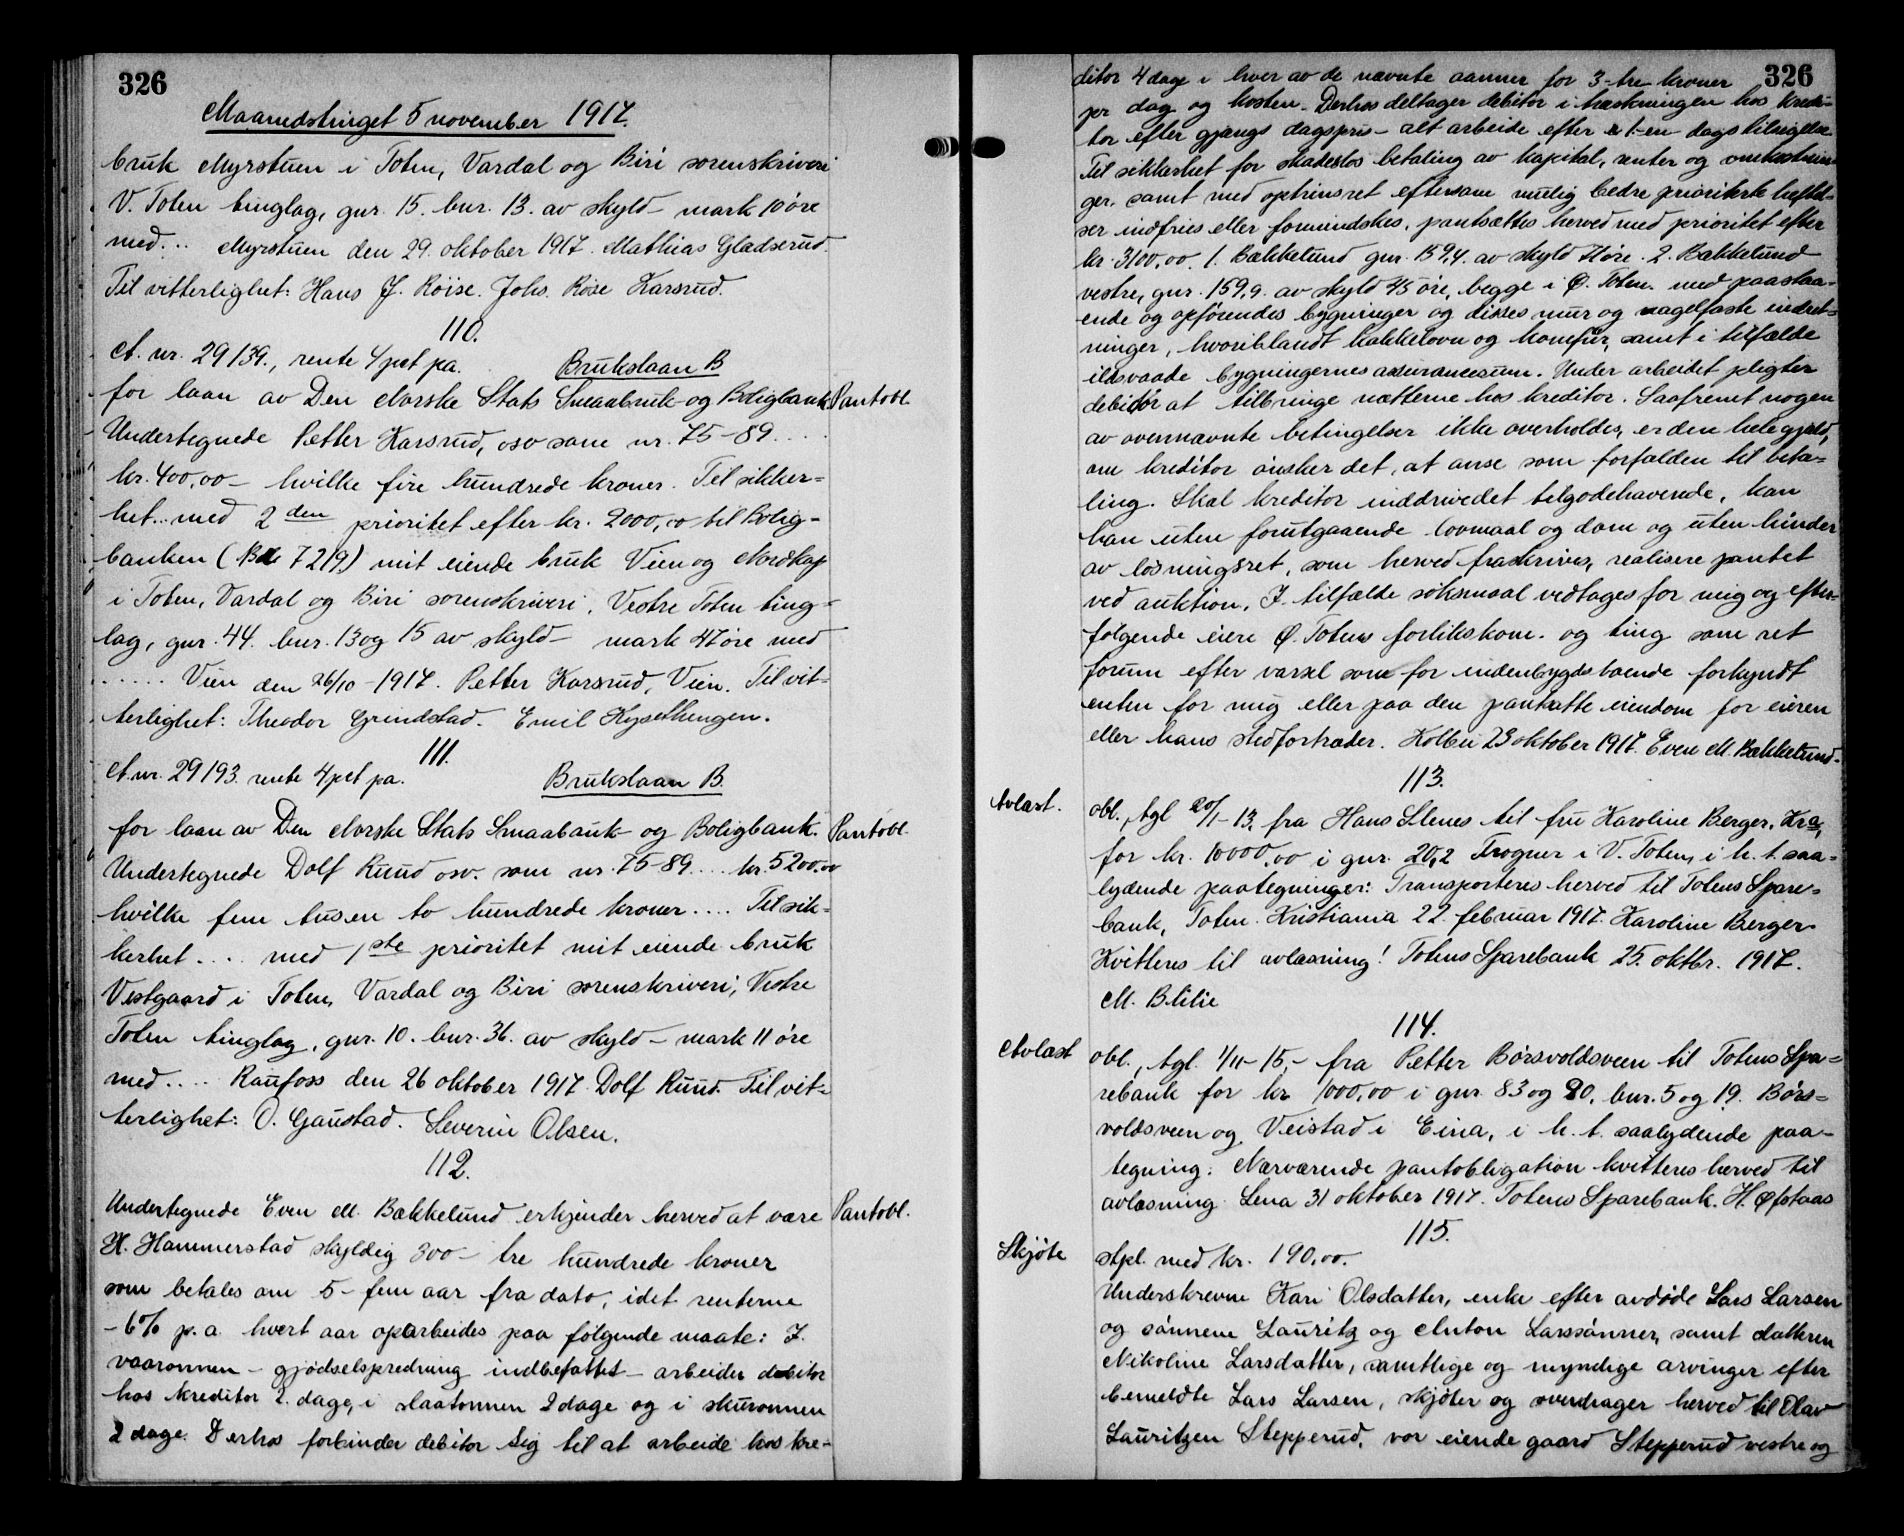 326
Maanedstinget 5 november 1917.
bruk Myrstuen i Toten, Vardal og Biri sorenskriveri
V. Toten tinglag, gnr. 15. bnr. 13. av skyld – mark 10 øre
med... Myrstuen den 29. oktober 1917. Mathias Gladserud.
Til vitterlighet: Hans J. Röise. Johs. Röise Karsrud.
110.
A. nr. 29139., rente 4 pct pa. Brukslaan B
for laan av Den Norske Stats Smaabruk- og Boligbank Pantobl.
Undertegnede Petter Karsrud, osv som nr. 75-89....
kr. 400,00 – hvilke fire hundrede kroner. Til sikker=
het... med 2den prioritet efter kr. 2000,00 til Bolig=
banken (7219) mit eiende bruk Vien og Nordkap
i Toten, Vardal og Biri sorenskriveri. Vestre Toten ting=
lag, gnr. 44. bnr. 13 og 15 av skyld – mark 47 øre med
..... Vien den 26/10-1917. Petter Karsrud, Vien. Til vit=
terlighet: Theodor Grindstad. Emil Hysethengen.
111.
A. nr. 29193. rente 4 pct pa. Brukslaan B.
for laan av Den Norske Stats Smaabank- og Boligbank. Pantobl.
Undertegnede Dolf Ruud osv. som nr. 75-89.... kr. 5200,00
hvilke fem tusen to hundrede kroner.... Til sik=
kerhet.... med 1ste prioritet mit eiende bruk
Vestgaard i Toten, Vardal og Biri sorenskriveri, Vestre
Toten tinglag, gnr. 10. bnr. 36. av skyld – mark 11 øre
med.... Raufoss den 26 oktober 1917. Dolf Ruud. Til vit=
terlighet: O. Gaustad. Severin Olsen.
112.
Undertegnede Even M. Bækkelund erkjender herved at være Pantobl.
H. Hammerstad skyldig 300 – tre hundrede kroner
som betales om 5 – fem aar fra dato, idet renterne
– 6% p.a. hvert aar oparbeides paa følgende maate: I.
vaaronnen – gjødselspredning indbefattet – arbeider debitor
hos kreditor 2. dage, i slaatonnen 2 dage og i skuronnen
2 dage. Derhos forbinder debitor sig til at arbeide hos kre-
326
ditor 4 dage i hver av de nævnte aanner for 3 – tre kroner
per dag og kosten. Derhos deltager debitor i træskningen hos kredi-
tor efter gjængs dagspris – alt arbeide efter 1 – en dags tilsigelse.
Til sikkerhet for skadeslos betaling av kapital, renter og omkostnin-
ger. samt med optrinsret eftersom mulig bedre prioriterte heftel=
ser indfries eller formindskes, pantsættes herved med prioritet efter
kr. 3100,00. 1. Bækkelund gnr. 159,4. av skyld 71 øre. 2. Bækkelund
vestre, gnr. 159,9. av skyld 45 øre, begge i Ø. Toten. med paastaa-
ende og opförendes bygninger og disses mur og nagelfaste indret=
ninger, hvoriblandt kakkelovn og komfur, samt i tilfælde
ildsvaade bygningernes assurancesum. Under arbeidet pligter
debitor at tilbringe nætterne hos kreditor. Saafremt nogen
av ovennævnte betingelser ikke overholdes, er den hele gjæld,
om kreditor önsker det, at anse som forfalden til beta-
ling. Skal kreditor inddrive det tilgodehavende, kan
han uten forutgaaende lovmaal og dom og uten hinder
av løsningsret, som herved fraskrives, realisere pantet
ved auktion. I tilfælde söksmaal vedtages for mig og efter-
følgende eiere Ø. Totens forlikskom. og ting som ret
forum efter varsel som for indenbygds boende forkyndt
enten for mig eller paa den pantsatte eiendom for eieren
eller hans stedfortræder. Kolbu 23 oktober 1917. Even M. Bækkelund.
113.
Avlæst. obl., tgl 20/1-13, fra Hans Stenes til fru Karoline Berger, Kra,
for kr. 10000,00 i gnr. 20,2 Frogner i V. Toten, i h. t. saa-
lydende paategninger: Transporteres herved til Totens Spare=
bank, Toten. Kristiania 22. februar 1917. Karoline Berger.
Kvitteres til avlæsning! Totens Sparebank 25. oktbr. 1917.
M. Blilie
114.
Avlæst obl., tgl. 4/11-15, – fra Petter Börsvoldsveen til Totens Spa=
rebank for kr 1000,00 i gnr. 83 og 90, bnr. 5 og 19. Börs=
voldsveen og Veistad i Eina, i h. t. saalydende paa-
tegning: Nærværende pantobligation kvitteres herved til
avlæsning. Lena 31 oktober 1917. Totens Sparebank. H. Øfstaas
115.
Skjöte stpl. med kr. 190,00.
Underskrevne Kari Olsdatter, enke efter avdöde Lars Larsen
og sönnene Lauritz og Anton Larssönner, samt datteren
Nikoline Larsdatter, samtlige og myndige arvinger efter
bemeldte Lars Larsen, skjöter og overdrager herved til Olav
Lauritzen Stepperud, vor eiende gaard Stepperud vestre og